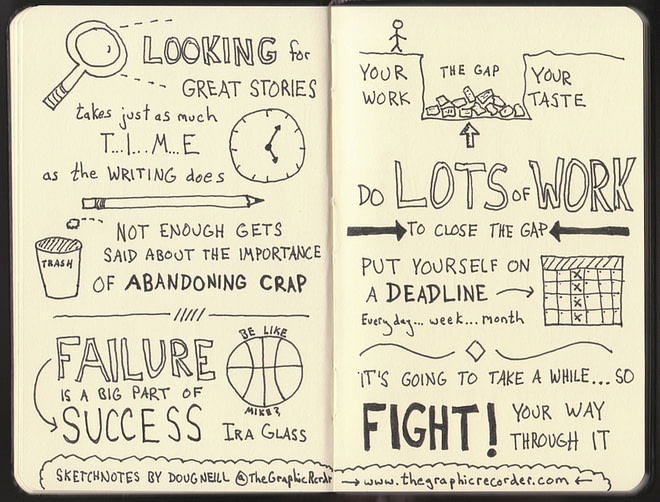 LOOKING for
GREAT STORIES
takes just as much
T...I...M...E
as the WRITING does
TRASH
NOT ENOUGH GETS
SAID ABOUT THE IMPORTANCE
OF ABANDONING CRAP
FAILURE
IS A BIG PART OF
SUCCESS
BE LIKE
MIKE?
IRA GLASS
SKETCHNOTES BY DOUG NEILL @TheGraphicRcrdr
YOUR
WORK
THE GAP
YOUR
TASTE
DO LOTS OF WORK
TO CLOSE THE GAP
PUT YOURSELF ON
A DEADLINE
Every day... week... month
IT'S GOING TO TAKE A WHILE... SO
FIGHT! YOUR WAY
THROUGH IT
www.thegraphicrecorder.com